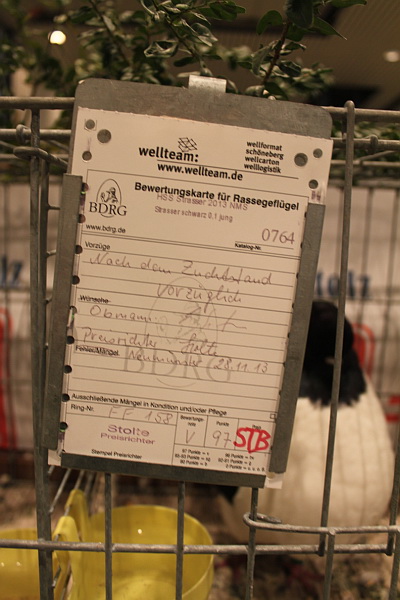 wellteam:
www.wellteam.de
wellformat
schöneberg
wellcarton
wellogistik
Bewertungskarte für Rassegeflügel
HSS Strasser 2013 NMS
Strasser schwarz 0,1 jung
BDRG
www.bdrg.de
Katalog-Nr. 0764
Vorzüge
Nach dem Zuchtstand
vorzüglich
Wünsche
Obmann
Preisrichter Stolte
Fehler/Mängel Neumünster 28.11.13
BDRG
Ausschließende Mängel in Kondition und/oder Pflege
Ring-Nr. FF 158
Stolte
Preisrichter
Stempel Preisrichter
Bewertungs-
note
V
Punkte
97
Preis
STB
97 Punkte = v